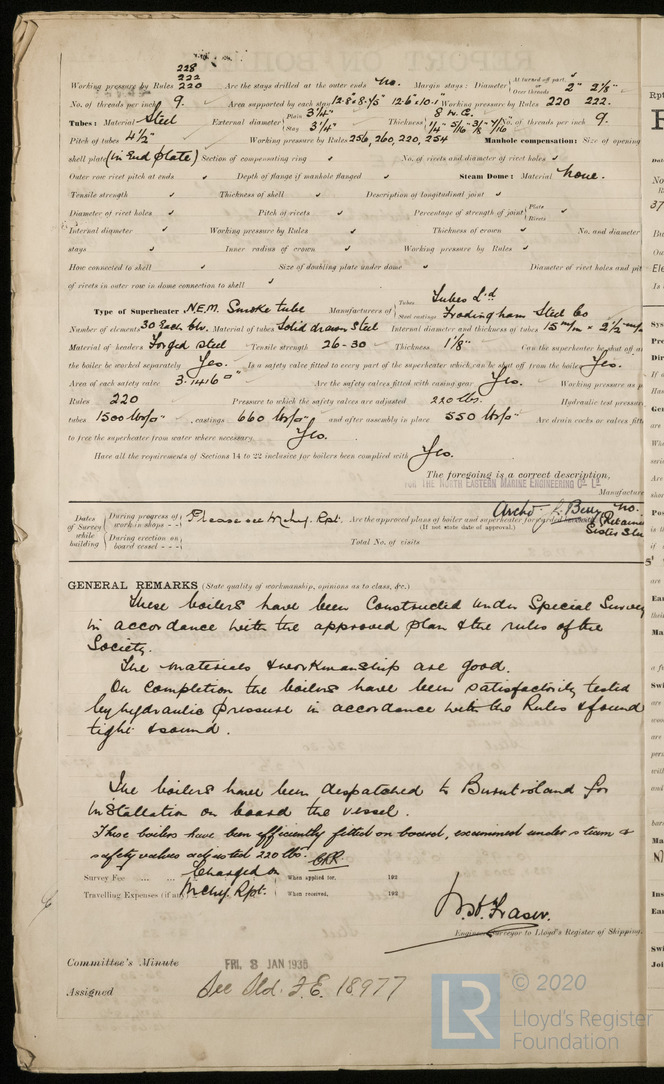 228
222
Working pressure by Rules 220 Are the stays drilled at the outer ends No. Margin stays: Diameter {At turned off part, or Over threads 2" 2⅛"
No. of threads per inch 9. Area supported by each stay Working pressure by Rules 220 222.
Tubes: Material Steel External diameter {Plain 3¼" Stay 3¼" Thickness {8 W.G. ¼" 5/16" 3/8" 7/16" No. of threads per inch 9.
Pitch of tubes 4½" Working pressure by Rules 256, 260, 220, 254 Manhole compensation: Size of opening
shell plate (in End plate) Section of compensating ring ✓ No. of rivets and diameter of rivet holes ✓
Outer row rivet pitch at ends ✓ Depth of flange if manhole flanged ✓ Steam Dome: Material None.
Tensile strength ✓ Thickness of shell ✓ Description of longitudinal joint ✓
Diameter of rivet holes ✓ Pitch of rivets ✓ Percentage of strength of joint {Plate Rivets ✓
Internal diameter ✓ Working pressure by Rules ✓ Thickness of crown ✓ No. and diameter
stays ✓ Inner radius of crown ✓ Working pressure by Rules ✓
How connected to shell ✓ Size of doubling plate under dome ✓ Diameter of rivet holes and pit
of rivets in outer row in dome connection to shell ✓
Type of Superheater N.E.M. Smoke tube Manufacturers of {Tubes Tubes Ld Steel castings Frodingham Steel Co
Number of elements 30 Each blr. Material of tubes Solid drawn Steel Internal diameter and thickness of tubes 15 m/m × 2½ m/m
Material of headers Forged steel Tensile strength 26-30 Thickness 1⅛" Can the superheater be shut off a
the boiler be worked separately Yes. Is a safety valve fitted to every part of the superheater which can be shut off from the boiler Yes.
Area of each safety valve 3.1416 □" Are the safety valves fitted with easing gear Yes. Working pressure as p
Rules 220 Pressure to which the safety valves are adjusted 220 lbs. Hydraulic test pressure
tubes 1500 lbs/□" castings 660 lbs/□" and after assembly in place 550 lbs/□" Are drain cocks or valves fitt
to free the superheater from water where necessary Yes.
Have all the requirements of Sections 14 to 22 inclusive for boilers been complied with Yes.
The foregoing is a correct description,
FOR THE NORTH EASTERN MARINE ENGINEERING Co. Ld.
Manufacture
Dates of Survey while building {During progress of work in shops - - Please see Mchy. Rpt. Are the approved plans of boiler and superheater forwarded herewith No.
(If not state date of approval.)
Sister
{During erection on board vessel - - - Total No. of visits
GENERAL REMARKS (State quality of workmanship, opinions as to class, &c.)
These boilers have been Constructed under Special Survey
in accordance with the approved plan & the rules of the
Society.
The materials & workmanship are good.
On completion the boilers have been satisfactorily tested
by hydraulic pressure in accordance with the Rules & found
tight & sound.
The boilers have been despatched to Burntisland for
installation on board the vessel.
These boilers have been efficiently fitted on board, examined under steam &
safety valves adjusted 220 lbs.
Survey Fee ... ... Charged on When applied for, 193
Travelling Expenses (if any) Mchy Rpt. When received, 193
Fraser.
Engineer Surveyor to Lloyd's Register of Shipping.
Committee's Minute FRI. 3 JAN 1936
Assigned See Sld. F.E. 18977
© 2020
LR Lloyd's Register
Foundation